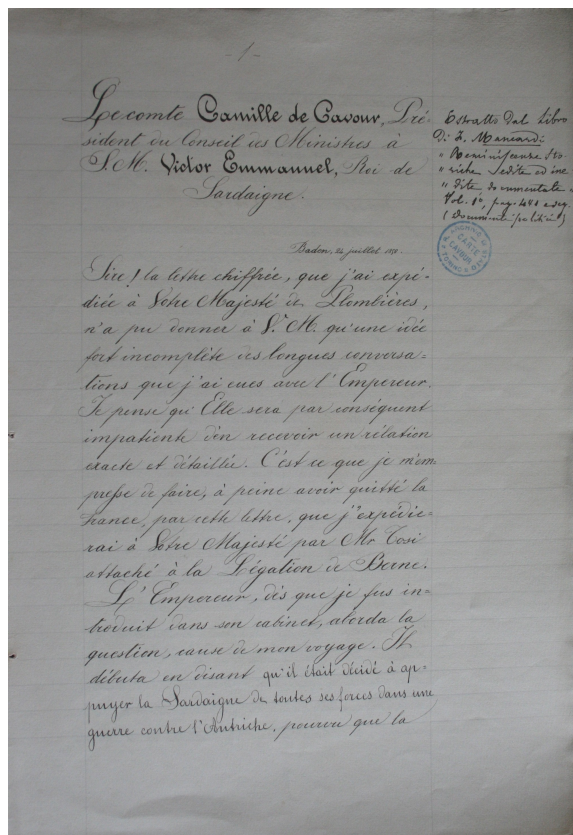 - 1 -
Le comte Camille de Cavour, Pré-
sident du Conseil des Ministres à
S. M. Victor Emmanuel, Roi de
Sardaigne.
Estratto dal libro
di
" Reminiscenze Sto-
" riche edite ed ine-
" dite documentate "
Vol. 1º, pag. 491 e seg.
(Documenti politici)
CARTE CAVOUR
Baden, 24 juillet 1858.
Sire! la lettre chiffrée, que j'ai expé-
diée à Vôtre Majesté de Plombières,
n'a pu donner à V. M. qu'une idée
fort incomplète des longues conversa-
tions que j'ai eues avec l'Empereur.
Je pense qu'Elle sera par conséquent
impatiente d'en recevoir un rélation
exacte et détaillée. C'est ce que je m'em-
presse de faire, à peine avoir quitté la
France, par cette lettre, que j'expédie-
rai à Vôtre Majesté par Mr Tosi
attaché à la Légation de Berne.
L'Empereur, dès que je fus in-
troduit dans son cabinet, aborda la
question, cause de mon voyage. Il
débuta en disant qu'il était décidé à ap-
puyer la Sardaigne de toutes ses forces dans une
guerre contre l'Autriche, pourvu que la